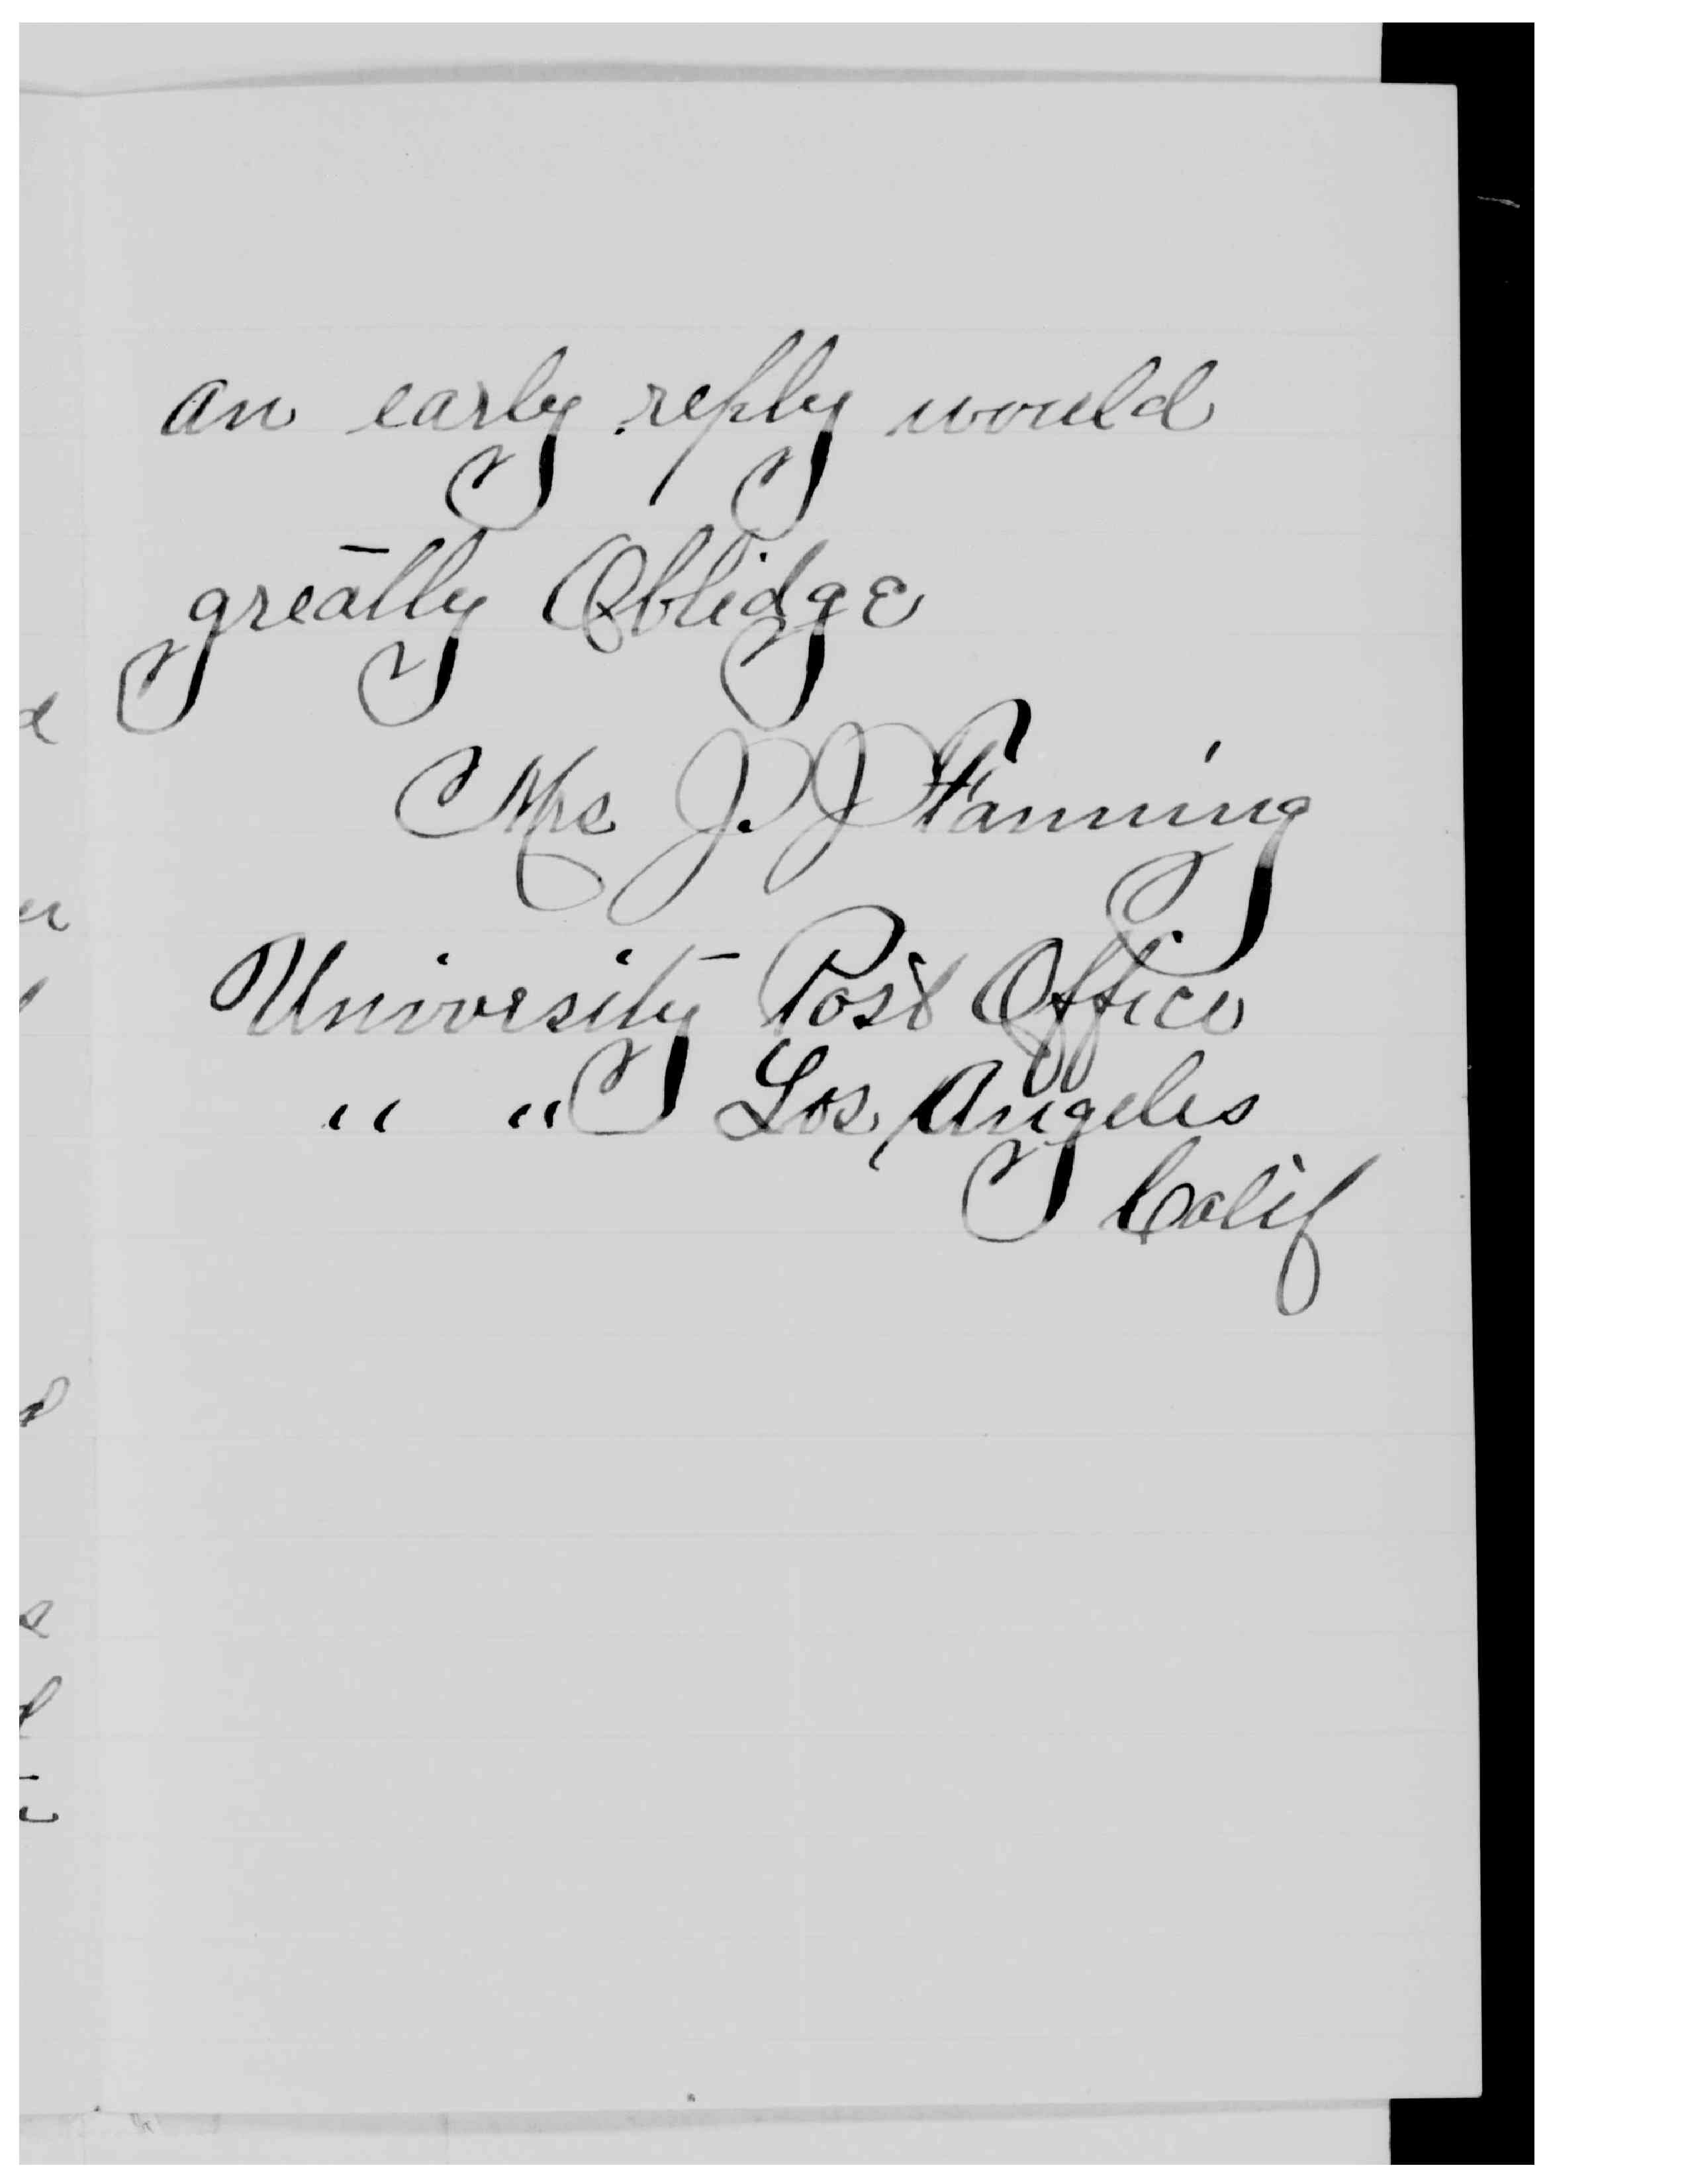 an early reply would
greatly Oblidge
Mrs J. J Fanning
University Post Office
" " Los Angeles
Calif